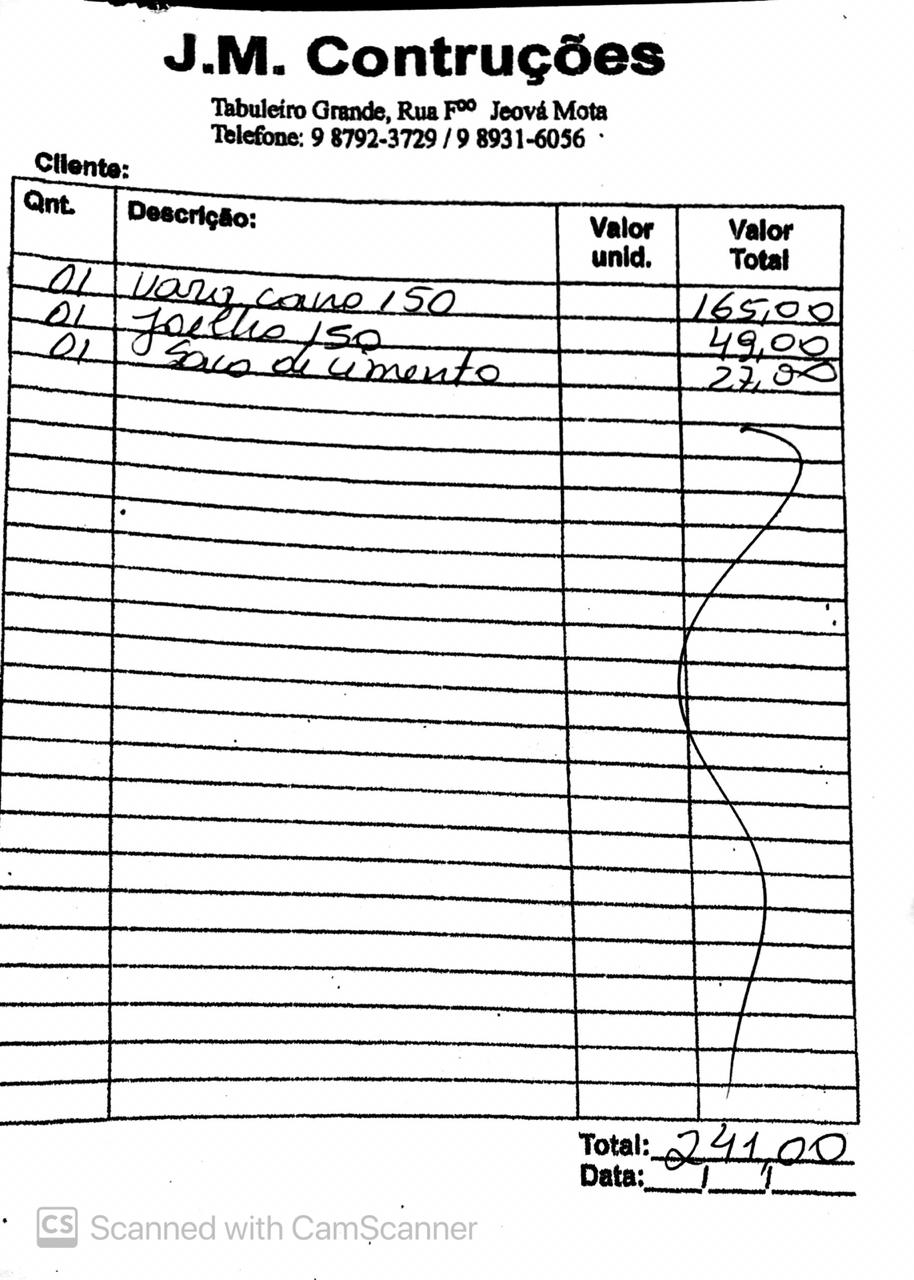 J.M. Contruções
Tabuleiro Grande, Rua Fºº Jeová Mota
Telefone: 9 8792-3729 / 9 8931-6056
Cliente:
Qnt. Descrição: Valor unid. Valor Total
01 vara cano 150 165,00
01 Joelho 150 49,00
01 Saco de cimento 27,00
Total: 241,00
Data: / /
CS Scanned with CamScanner